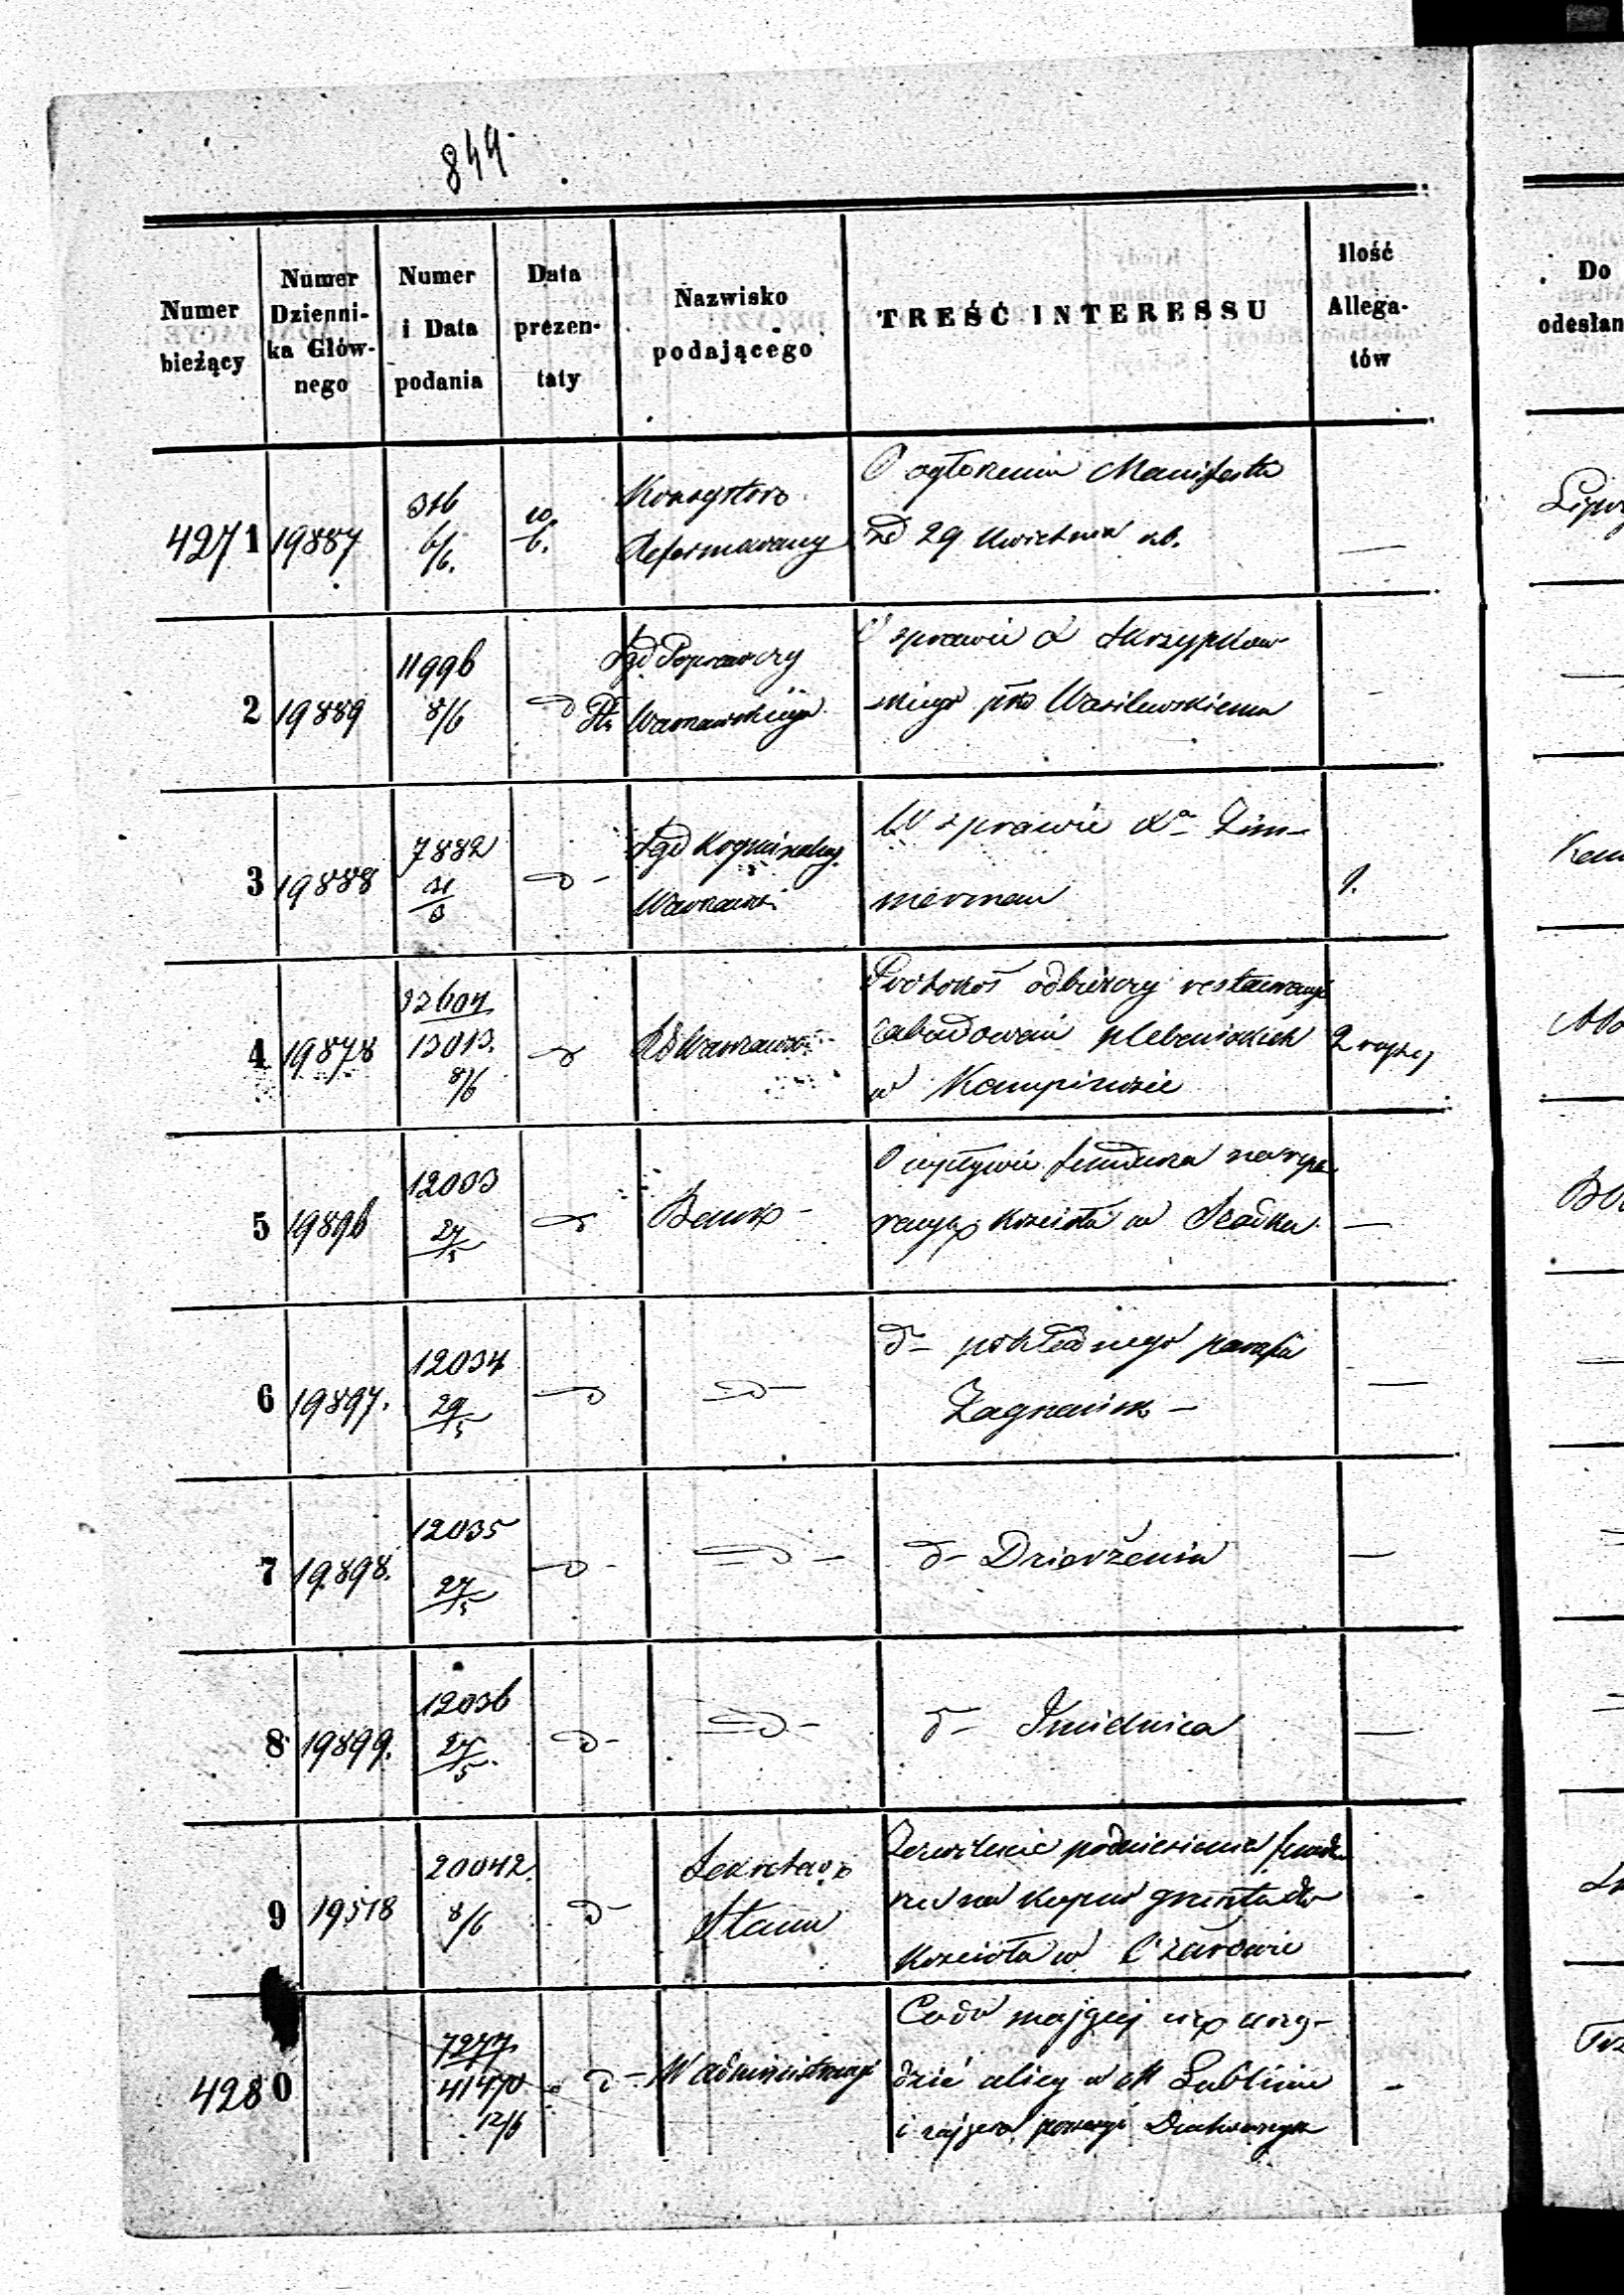 844
Numer bieżący
Numer Dzienni-
ka Głów-
nego
Numer i Data podania
Data prezen-
taty
Nazwisko podającego
TREŚĆ INTERESSU
Ilość Allega-
tów
Do
odesłan
4271 19887 316 6/6. 10/6.
Konsystorz
Reformowany
O ogłoszeniu Manifestu
z d 29 Kwietnia rb. —
2 19889 11996 8/6 D
Sąd Poprawczy
Warszawskiego
W sprawie X Skrzypkow-
skiego pko Wasilewskiemu -
3 19888 7882 31/3 D -
Sąd Kryminalny
Warszawski
W sprawie Xa Zim-
merman 1.
4 19878 32604 13013. 8/6
RG Warszawski
Protokół odbiorczy restauracyi
zabudowań plebańskich 2
w Kampinosie
5 19896 12003 27/5
Bank -
O wpływie funduszu na repe-
racyą kościoła w Szadku —
6 19897. 12034 29/5 D
D —
d - pokładnego parafii
Zagnańsk - —
7 19898. 12035 27/5 D -
D -
d - Dzierżenin —
8 19899. 12036 27/5 D -
D -
d - Śmielnica —
9 19518 20042. 8/6 D -
Sekretarz
Stanu
Zezwolenie podniesienia fundu-
szu na kupno gruntu dla
kościoła w -
4280 7277 41470 12/6 D -
W administracyi
Co do mającej się urzą-
dzić ulicy w M Lublinie -
i zajęcia possesyi